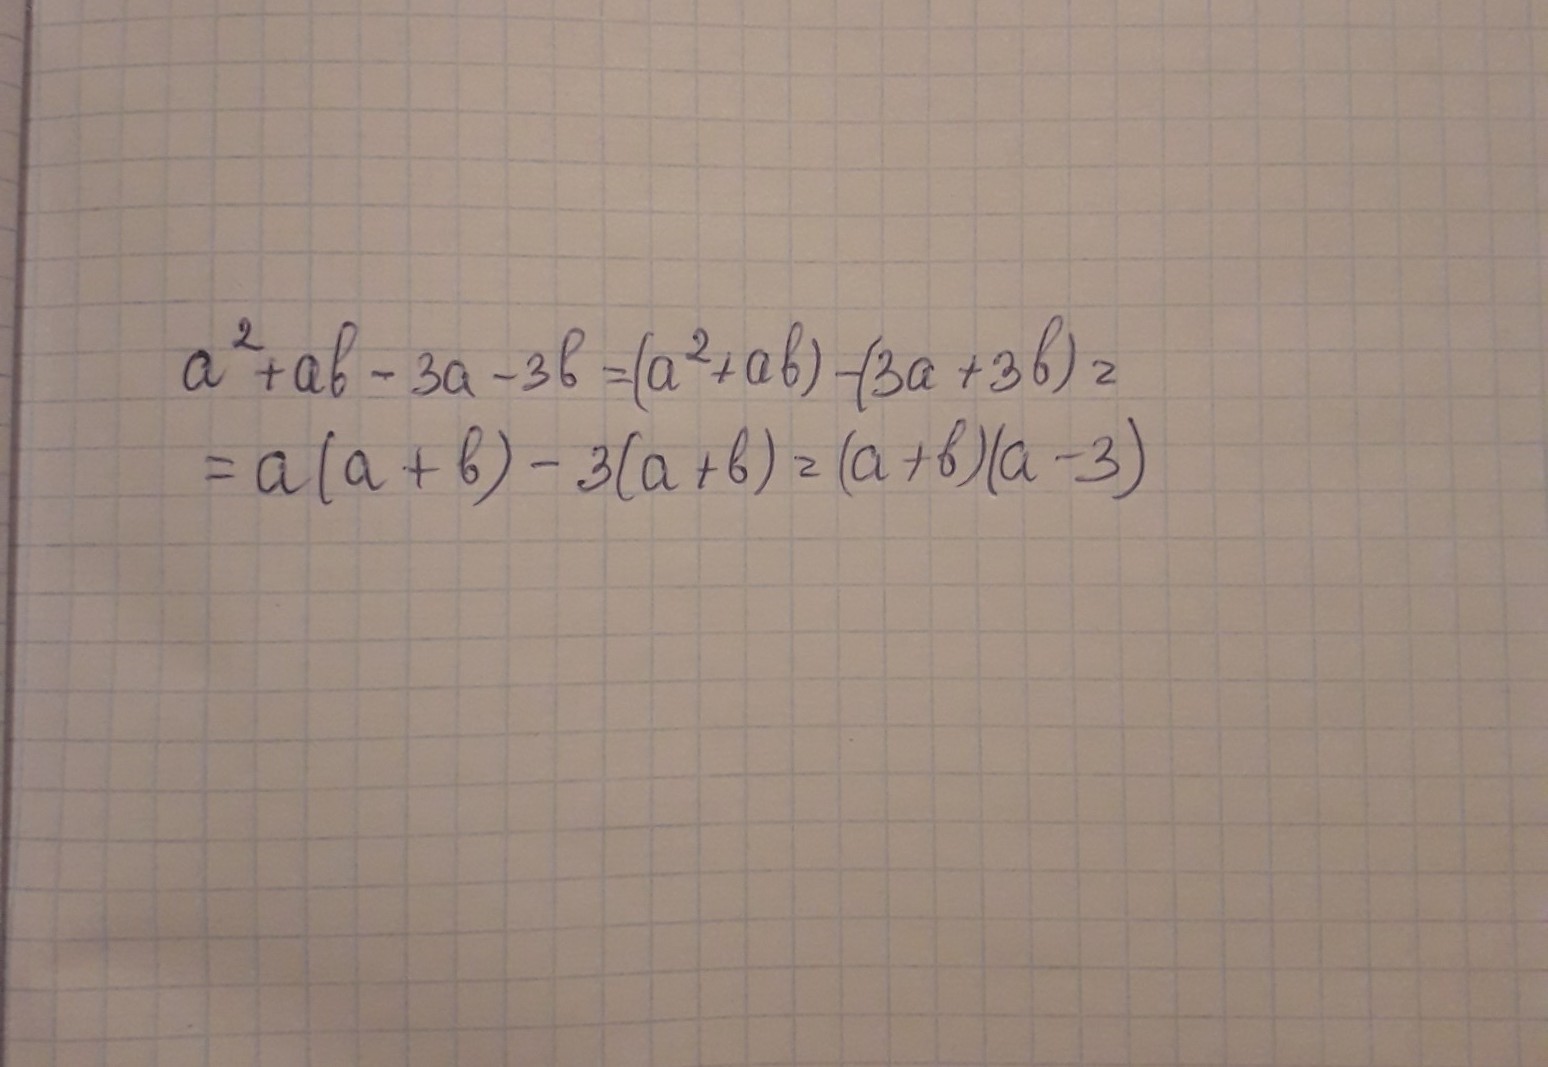 a²+ab-3a-3b=(a²+ab)-(3a+3b)=
=a(a+b)-3(a+b)=(a+b)(a-3)